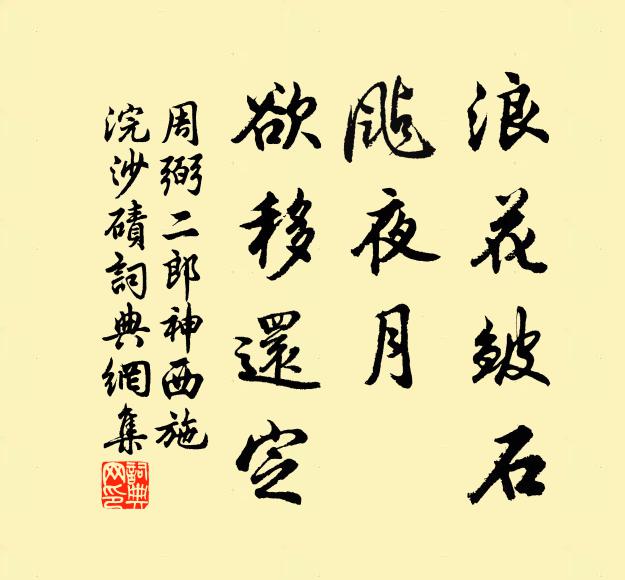 浪花皴石
飐夜月
欲移還定
周弼二郎神西施
浣沙磧詞典網集
詞典
网印